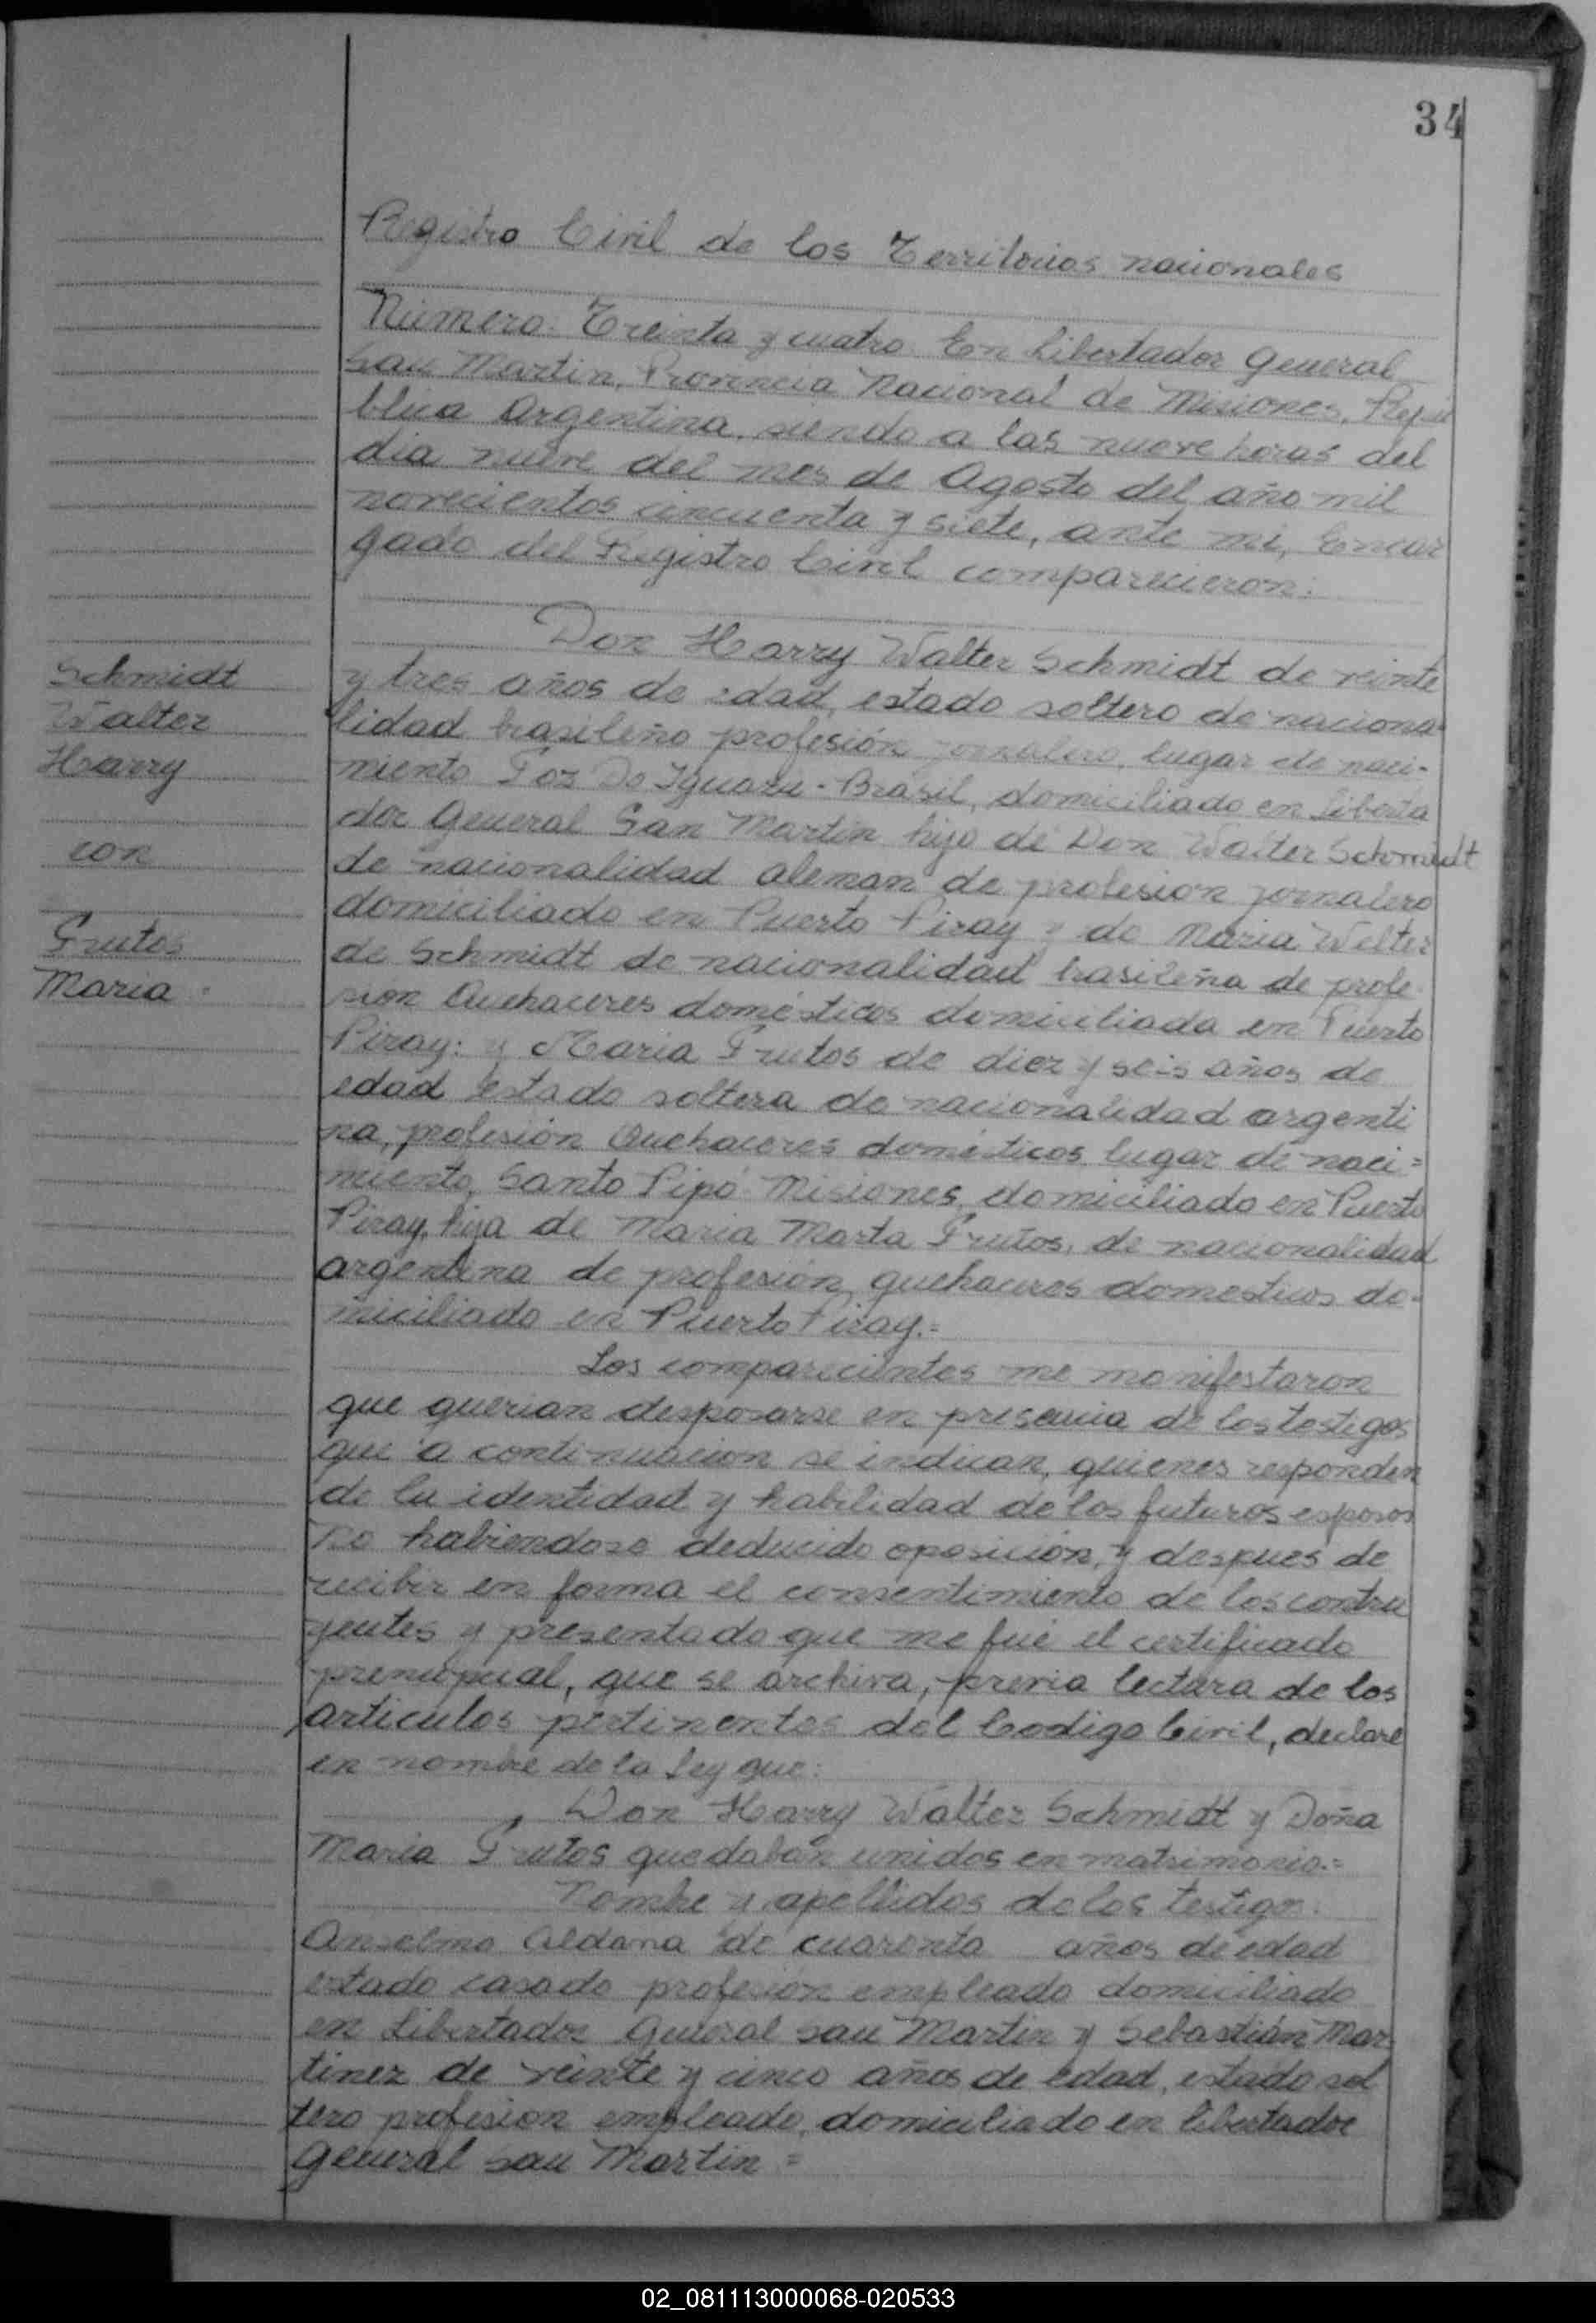 34
Registro Civil de los Territorios nacionales
Número: Treinta y cuatro. En Libertador General
San Martin, Provincia Nacional de Misiones, Repú
blica Argentina, siendo a las nueve horas del
dia nueve del mes de Agosto del año mil
novecientos cincuenta y siete, ante mi, Encar
gado del Registro Civil comparecieron:
Don Harry Walter Schmidt de veinte
y tres años de edad, estado soltero de naciona-
lidad brasileño profesión jornalero, lugar de naci-
miento Foz Do Iguazu - Brasil, domiciliado en Liberta
dor General San Martin hijo de Don Walter Schmidt
de nacionalidad aleman de profesion jornalero
domiciliado en Puerto Piray y de Maria Welter
de Schmidt de nacionalidad brasileña de profe
sion Quehaceres domésticos domiciliada en Puerto
Piray: y Maria Frutos de diez y seis años de
edad estado soltera de nacionalidad argenti
na, profesión Quehaceres domésticos lugar de naci=
miento, Santo Pipó Misiones, domiciliado en Puerto
Piray, hija de Maria Marta Frutos, de nacionalidad
argentina de profesión quehaceres domesticos do-
miciliado en Puerto Piray.=
Los comparecientes me manifestaron
que querian desposarse en presencia de los testigos
que a continuacion se indican, quienes responden
de la identidad y habilidad de los futuros esposos
No habiendose deducido oposición, y despues de
recibir en forma el consentimiento de los contra
yentes y presentado que me fué el certificado
prenupcial, que se archiva, previa lectura de los
articulos pertinentes del Codigo Civil, declare
en nombre de la Ley que:
Don Harry Walter Schmidt y Doña
Maria Frutos quedaban unidos en matrimonio.=
Nombre y apellidos de los testigo:
Anselmo Aldana de cuarenta años de edad
estado casado profesión empleado domiciliado
en Libertador General San Martin y Sebastián Mar
tinez de veinte y cinco años de edad, estado sol
tero profesion empleado, domiciliado en Libertador
General San Martin =
Schmidt
Walter
Harry
con
Frutos
Maria
02_081113000068-020533